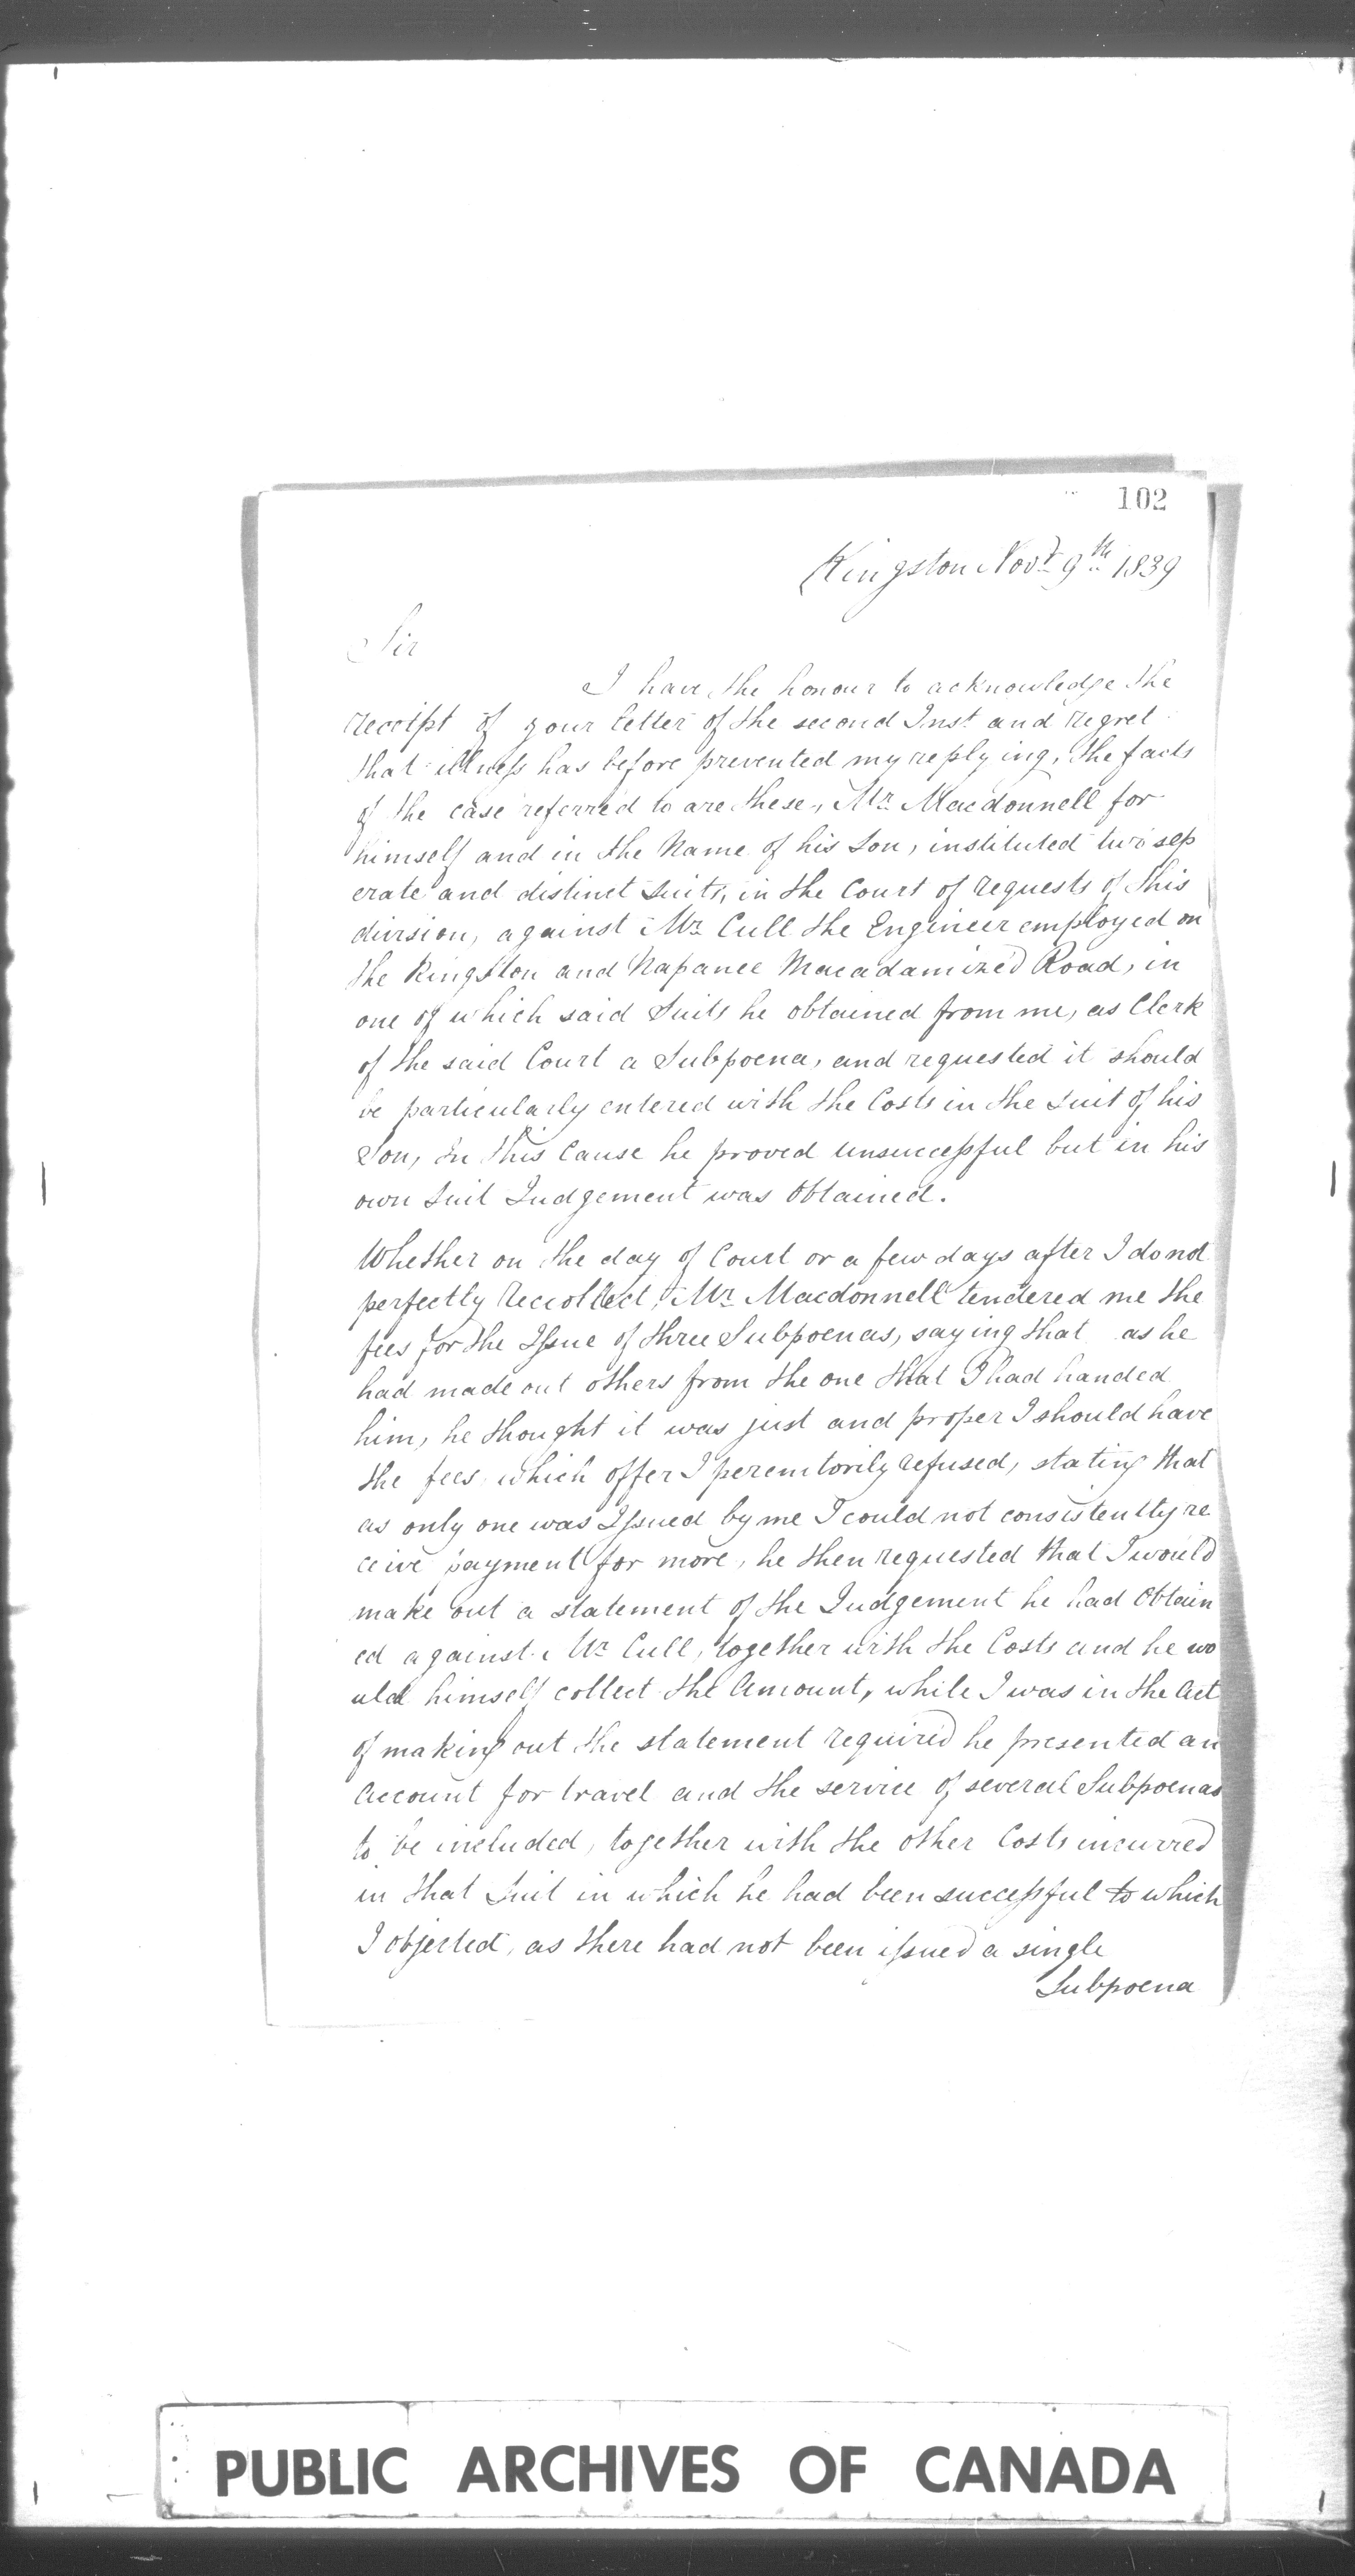 102
Kingston Novr 9th 1839
Sir
I have the honour to acknowledge the
receipt of your letter of the second Inst and regret
that illness has before prevented my replying, the facts
of the case referred to are these, Mr Macdonnell for
himself and in the Name of his Son, instituted two sep
erate and distinct Suits, in the Court of requests of this
division, against Mr Cull the Engineer employed on
the Kingston and Napanee Macadamized Road, in
one of which said Suits he obtained from me, as Clerk
of the said Court a Subpoena, and requested it should
be particularly entered with the Costs in the Suit of his
Son, In this Cause he proved unsuccessful but in his
own Suit Judgement was Obtained.
Whether on the day of Court or a few days after I do not
perfectly Reccollect, Mr Macdonnell tendered me the
fees for the Issue of three Subpoenas, saying that as he
had made out others from the one that I had handed
him, he thought it was just and proper I should have
the fees which offer I peremtorily refused, stating that
as only one was Issued by me I could not consistently re
ceive payment for more, he then requested that I would
make out a statement of the Judgement he had Obtain
ed against Mr Cull, together with the Costs and he wo
uld himself collect the Amount, while I was in the Act
of making out the statement required he presented an
Account for travel and the service of several Subpoenas
to be included, together with the other Costs incurred
in that Suit in which he had been successful to which
I objected, as there had not been issued a single
Subpoena
PUBLIC ARCHIVES OF CANADA